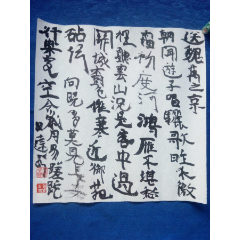 送魏萬之京
朝聞遊子唱驪歌昨夜微
霜初度河鴻雁不堪愁
裡聽雲山況是客中過
關城樹色催寒近御苑
砧聲向晚多莫見長安
行樂處空令歲月易蹉跎